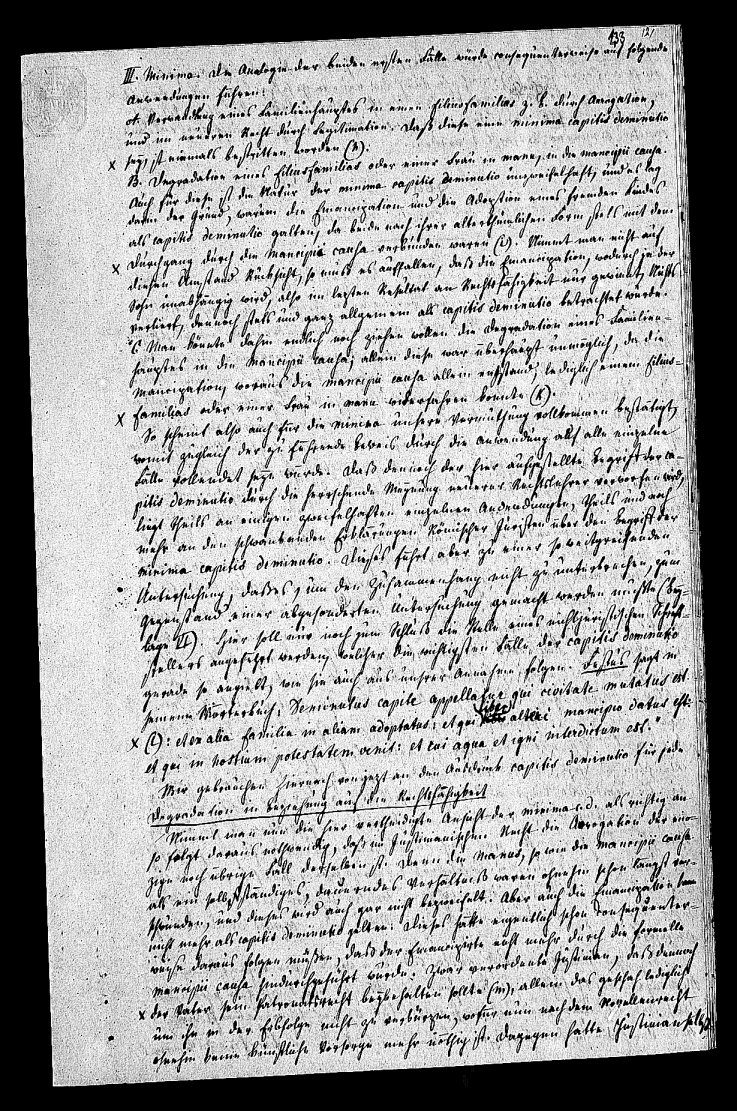 133 121
III. Minima. Die Analogie der beiden ersten Fälle würde consequenterweise auf folgende
Anwendungen führen:
A. Verwandlung eines Familienhauptes in einen filiusfamilias z. B. durch Arrogation,
und im neueren Recht durch Legitimation. Daß diese eine minima capitis deminutio
sey, ist niemals bestritten worden (h).
B. Degradation eines filiusfamilias oder einer Frau in manu, in die mancipii causa.
Auch für diese ist die Natur der minima capitis deminutio unzweifelhaft, und es lag
darin der Grund, warum die Emancipation und die Adoption eines fremden Kindes
als capitis deminutio galten, da beide nach ihrer alterthümlichen Form stets mit dem
Durchgang durch die mancipii causa verbunden waren (i). Nimmt man nicht auf
diesen Umstand Rücksicht, so muß es auffallen, daß die Emancipation, wodurch ja der
Sohn unabhängig wird, also im letzten Resultat an Rechtsfähigkeit nur gewinnt, Nichts
verliert, dennoch stets und ganz allgemein als capitis deminutio betrachtet wurde.
C. Man könnte dahin endlich noch ziehen wollen die Degradation eines Familien-
hauptes in die mancipii causa; allein diese war überhaupt unmöglich, da die
Mancipation, woraus die mancipii causa allein entstand, lediglich einem filius-
familias oder einer Frau in manu widerfahren konnte (k).
So scheint also auch für die minima unsere Vermuthung vollkommen bestätigt,
womit zugleich der zu führende Beweis durch die Anwendung auf alle einzelne
Fälle vollendet seyn würde. Daß dennoch der hier aufgestellte Begriff der ca-
pitis deminutio durch die herrschende Meynung neuerer Rechtslehrer verworfen wird,
liegt theils an einigen zweifelhaften einzelnen Anwendungen, theils und noch
mehr an den schwankenden Erklärungen Römischer Juristen über den Begriff der
minima capitis deminutio. Dieses führt aber zu einer so weitgreifenden
Untersuchung, daß es, um den Zusammenhang nicht zu unterbrechen, zum
Gegenstand einer abgesonderten Untersuchung gemacht werden mußte (Bey-
lage VI). Hier soll nur noch zum Schluß die Stelle eines nichtjuristischen Schrift-
stellers angeführt werden, welcher die wichtigsten Fälle der capitis deminutio
gerade so angiebt, wie sie auch aus unsrer Annahme folgen. Festus sagt in
seinem Wörterbuch: Deminutus capite appellatur qui civitate mutatus est
(l): et ex alia familia in aliam adoptatus: et qui liber alteri mancipio datus est:
et qui in hostium potestatem venit: et cui aqua et igni interdictum est."
Wir gebrauchen hiernach von jetzt an den Ausdruck capitis deminutio für jede
Degradation in Beziehung auf die Rechtsfähigkeit
Nimmt man nun die hier vertheidigte Ansicht der minima c. d. als richtig an
so folgt daraus nothwendig, daß im Justinianischen Recht die Arrogation der ein-
zige noch übrige Fall derselben ist. Denn die Manus, so wie die mancipii causa
als ein selbstständiges, dauerndes Verhältniß waren ohnehin schon längst ver-
schwunden, und dieses wird auch gar nicht bezweifelt. Aber auch die Emancipation kann
nicht mehr als capitis deminutio gelten. Dieses hätte eigentlich schon consequenter-
weise daraus folgen müßen, daß der Emancipirte nicht mehr durch die formelle
mancipii causa hindurchgeführt wurde. Zwar verordnete Justinian, daß dennoch
der Vater sein Patronatsrecht beybehalten sollte (m), allein das geschah lediglich
um ihn in der Erbfolge nicht zu verkürzen, wofür nun nach dem Novellenrecht
ohnehin keine künstliche Vorsorge mehr nöthig ist. Dagegen hatte Justinian selbst